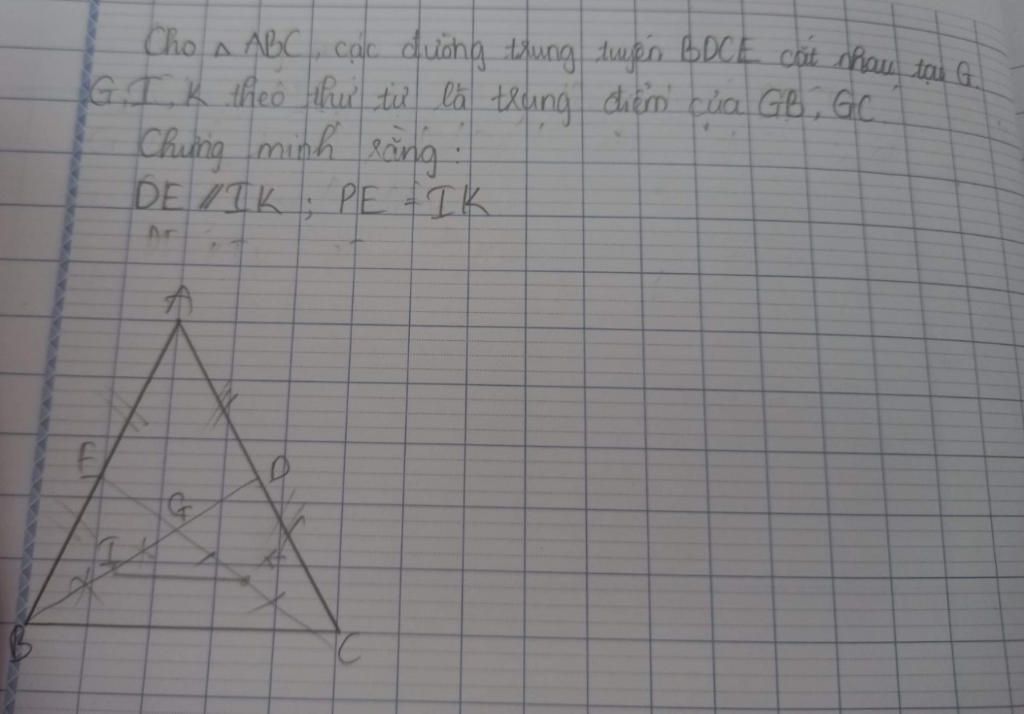 Cho △ ABC, các đường trung tuyến BDCE cắt nhau tại G.
G, I, K theo thứ tự là trung điểm của GB, GC
Chứng minh rằng :
DE // IK ; DE = IK
A
E
D
G
I
K
B
C